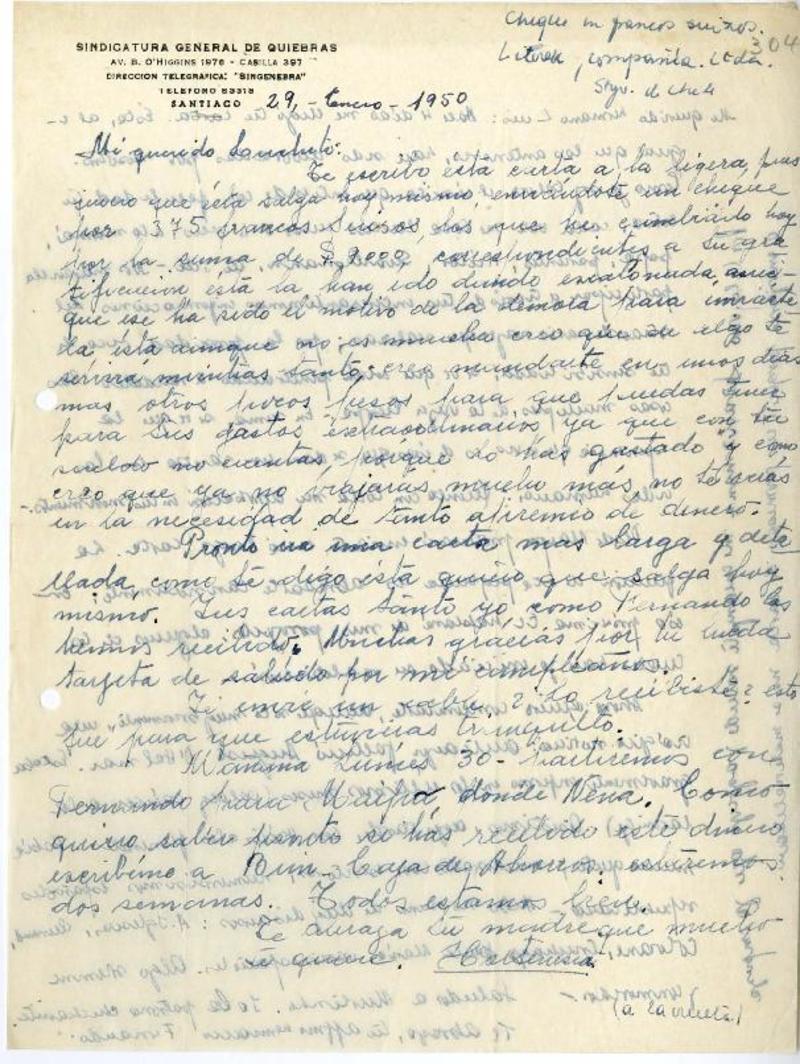 Cheque en francos suizos.
304
compañía. Ltda.
Stgo. de Chile
SINDICATURA GENERAL DE QUIEBRAS
AV. B. O'HIGGINS 1976 - CASILLA 397
DIRECCION TELEGRAFICA: "SINGENEBRA"
TELEFONO 83315
SANTIAGO 29, - Enero - 1950
Mi querido Lauchito:
Te escribo esta carta a la ligera, pues
quiero que ésta salga hoy mismo, enviándote un cheque
por 375 francos suisos, los que he cambiado hoy
por la suma de $ 9.000, correspondientes a tu gra
tificación ésta la han ido dando escalonada, así
que ese ha sido el motivo de la demora para enviarte
la, ésta aunque no es mucha creo que de algo te
servirá mientras tanto; creo mandarte en unos días
mas otros pocos pesos para que puedas tener
para tus gastos extraordinarios, ya que con tu
sueldo no cuentas, porque lo has gastado" y como
creo que ya no viajarás mucho más no te verás
en la necesidad de tanto apremio de dinero.
Pronto irá una carta mas larga y deta
llada, como te digo ésta quiero que salga hoy
mismo. Tus cartas tanto yo como Fernando las
hemos recibido. Muchas grácias por tu linda
tarjeta de saludo por mi cumpleaños.
Te envié un cable, ¿lo recibiste? esto
fué para que estuvieras tranquilo.
Mañana Lunes 30 - partiremos con
Fernando para Maipo, donde Nena. Como
quiero saber pronto si has recibido este dinero
escribeme a Buin - Caja de Ahorros. estaremos
dos semanas. Todos estamos bien.
Te abraza tu madre que mucho
te quiere.
(a la vuelta)